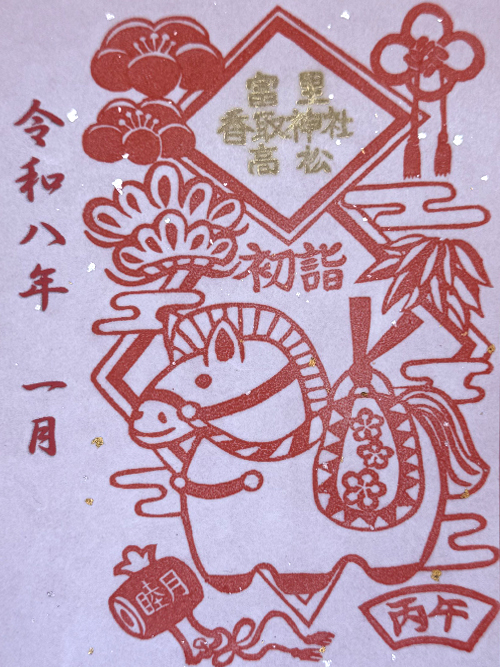 富里
香取神社
高松
初詣
令和八年 一月
睦月
丙午